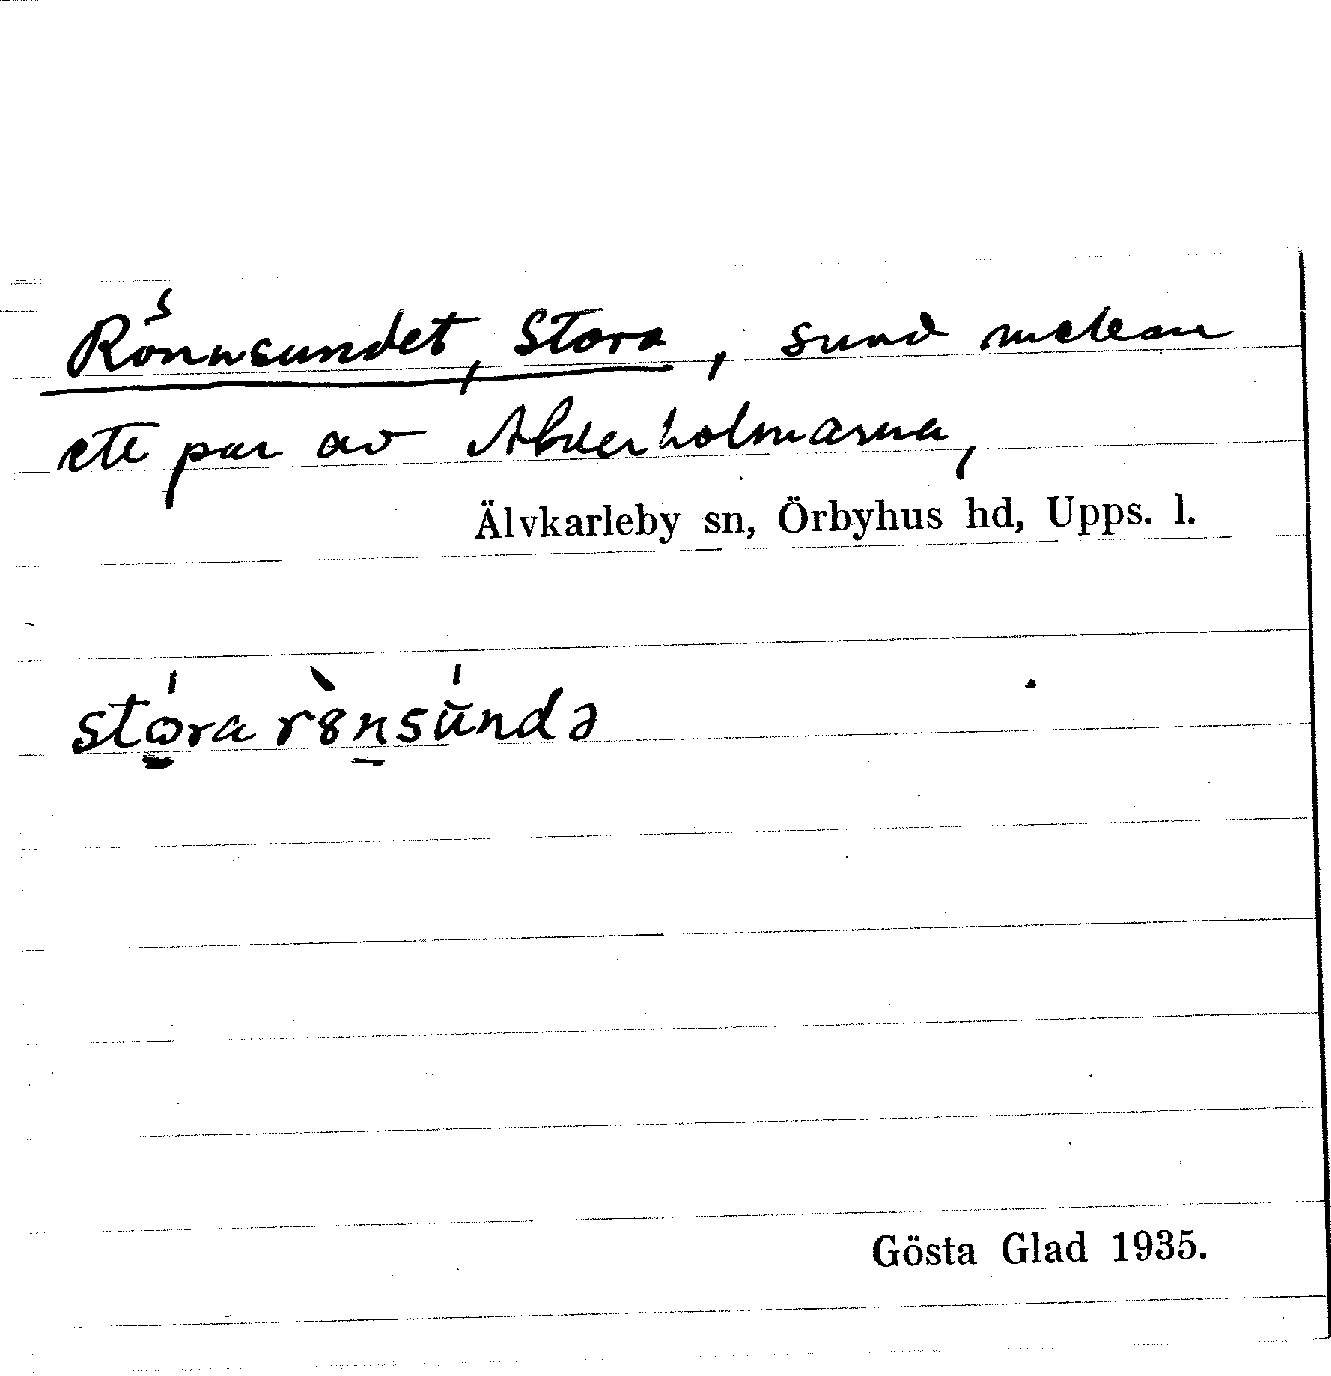 Rönnsundet, Stora, sund mellan
ett par av Abderholmarna,
Älvkarleby sn, Örbyhus hd, Upps. l.
stóra rènsúndə
Gösta Glad 1935.